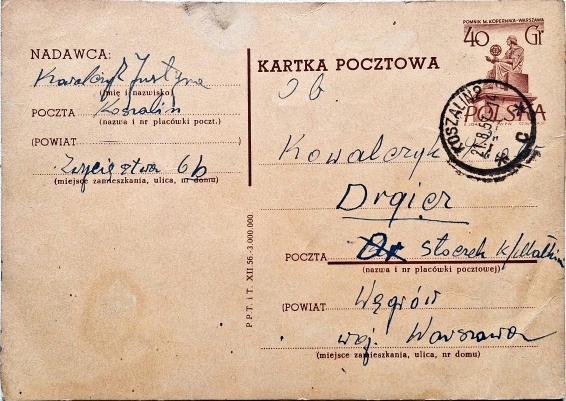 NADAWCA:
Kowalczyk Justyna
(imię i nazwisko)
POCZTA Koszalin
(nazwa i nr placówki poczt.)
(POWIAT)
Zwycięstwa 6b
(miejsce zamieszkania, ulica, nr domu)
P.P.T. i T. XII 56 - 3.000.000.
POMNIK M. KOPERNIKA - WARSZAWA
40 Gr
POLSKA
KOSZALIN 2
KARTKA POCZTOWA
Ob
Kowalczyk
Drgicz
POCZTA Stoczek k/Małkini
(nazwa i nr placówki pocztowej)
(POWIAT Węgrów
woj. Warszawa
(miejsce zamieszkania, ulica, nr domu)